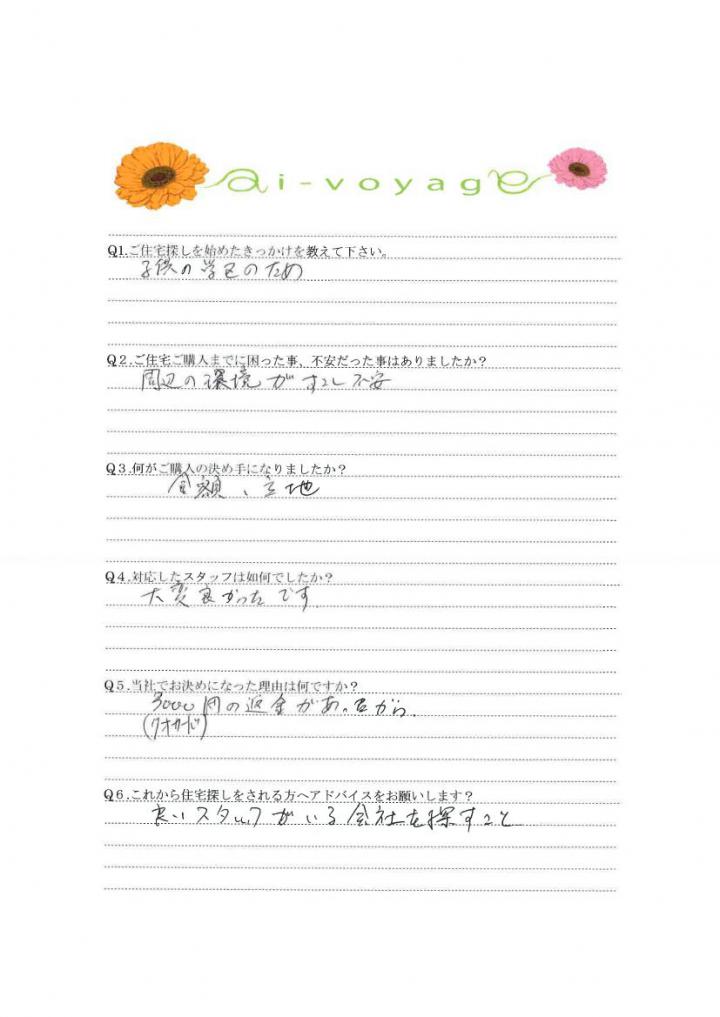 ai-voyage
Q1.ご住宅探しを始めたきっかけを教えて下さい。
子供の学区のため
Q2.ご住宅ご購入までに困った事、不安だった事はありましたか?
周辺の環境がすこし不安
Q3.何がご購入の決め手になりましたか?
金額、立地
Q4.対応したスタッフは如何でしたか?
大変良かったです
Q5.当社でお決めになった理由は何ですか?
3000円の返金があったから
(クオカード)
Q6.これから住宅探しをされる方へアドバイスをお願いします?
良いスタッフがいる会社を探すこと